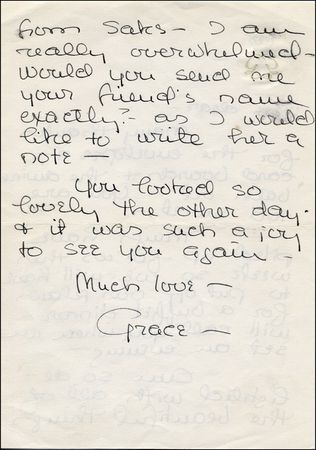 from Saks - I am
really overwhelmed -
would you send me
your friend's name
exactly? - as I would
like to write her a
note -
You looked so
lovely the other day -
& it was such a joy
to see you again -
Much love -
Grace -